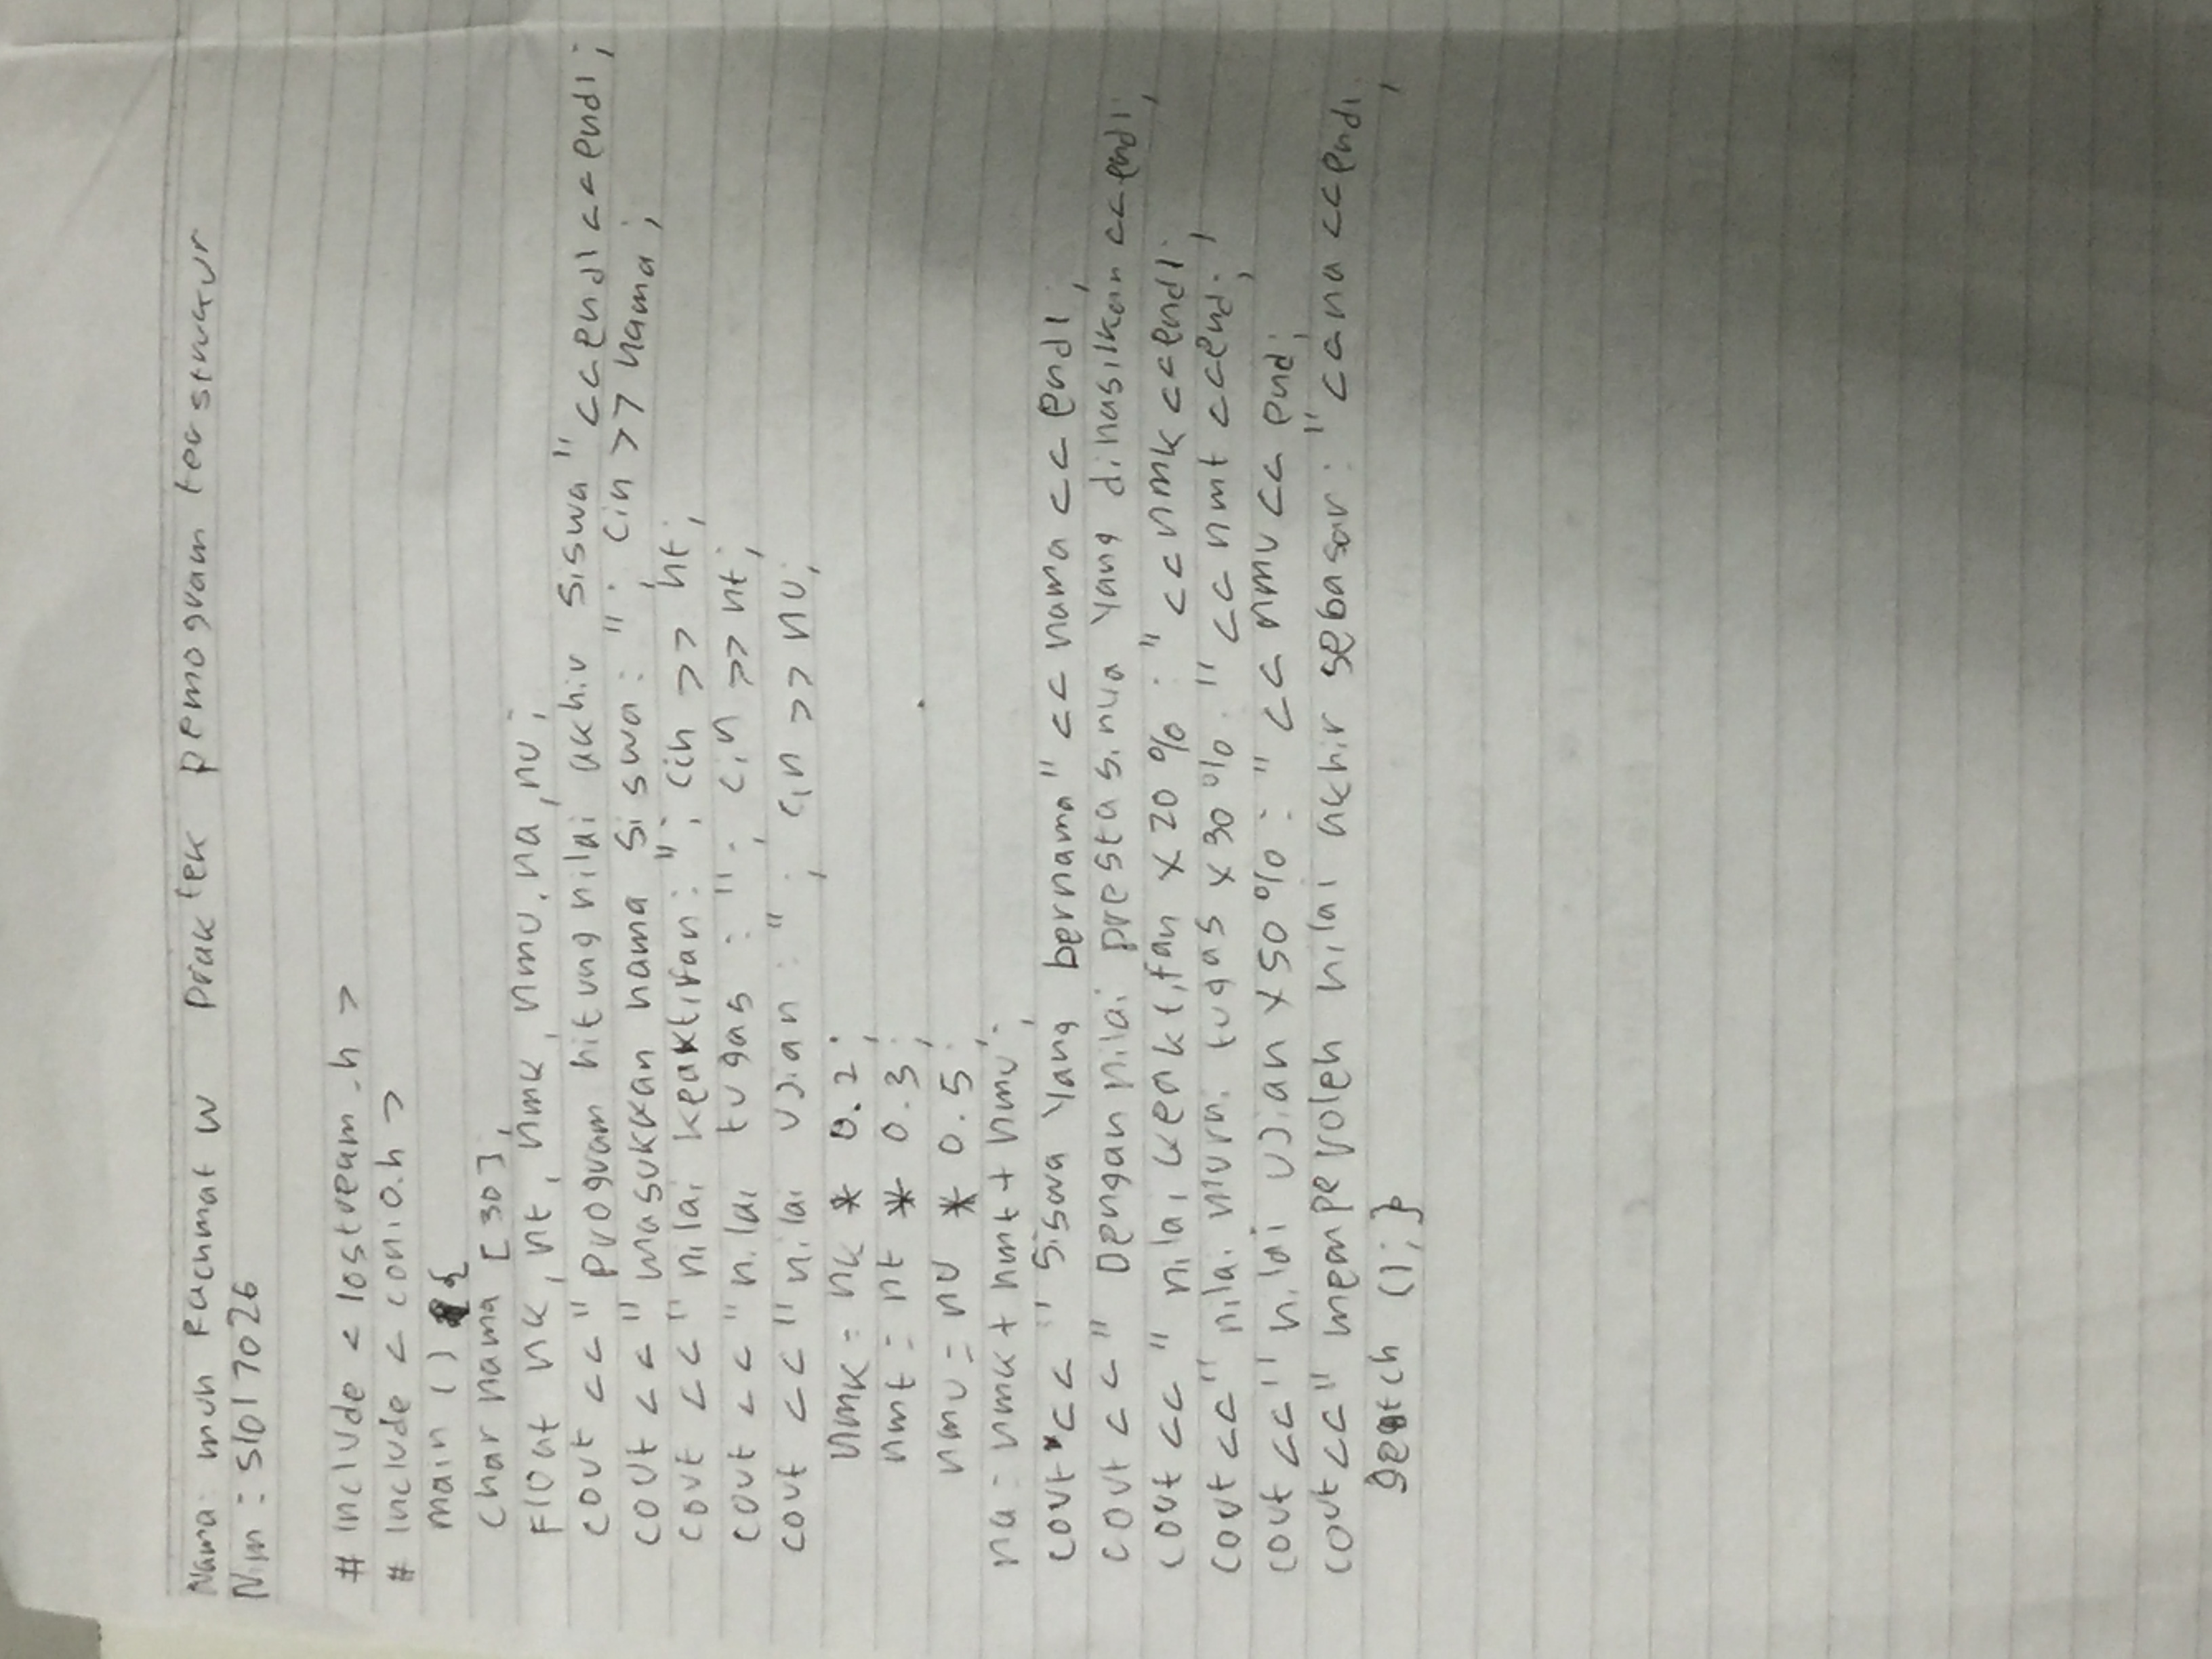 Nama: muh Rachmat W Praktek pemogram terstruktur
Nim : S1017026
# include < iostream.h >
# include < conio.h >
main () {
char nama [30];
Float nk, nt, nmk, nmu, na, nu;
cout <<" program hitung nilai akhir siswa" <<endl<<endl;
cout <<" masukkan nama siswa: "; cin >> nama;
cout <<" nilai keaktifan: "; cin >> nt;
cout <<" nilai tugas : "; cin >> nt;
cout <<" nilai ujian : "; cin >> nu;
nmk = nk * 0.2;
nmt = nt * 0.3;
nmu = nu * 0.5;
na = nmk + nmt + nmu;
cout << " Siswa Yang bernama" << nama << endl;
cout <<" Dengan nilai prestasinya Yang dihasilkan <<endl;
cout << " nilai keaktifan x 20 % : " <<nmk <<endl;
cout <<" nilai murni tugas x 30 % : " << nmt <<end;
cout <<" nilai ujian x 50 % : " << nmu << end;
cout <<" memperoleh nilai akhir sebasar: "<<na <<endl;
getch (); }